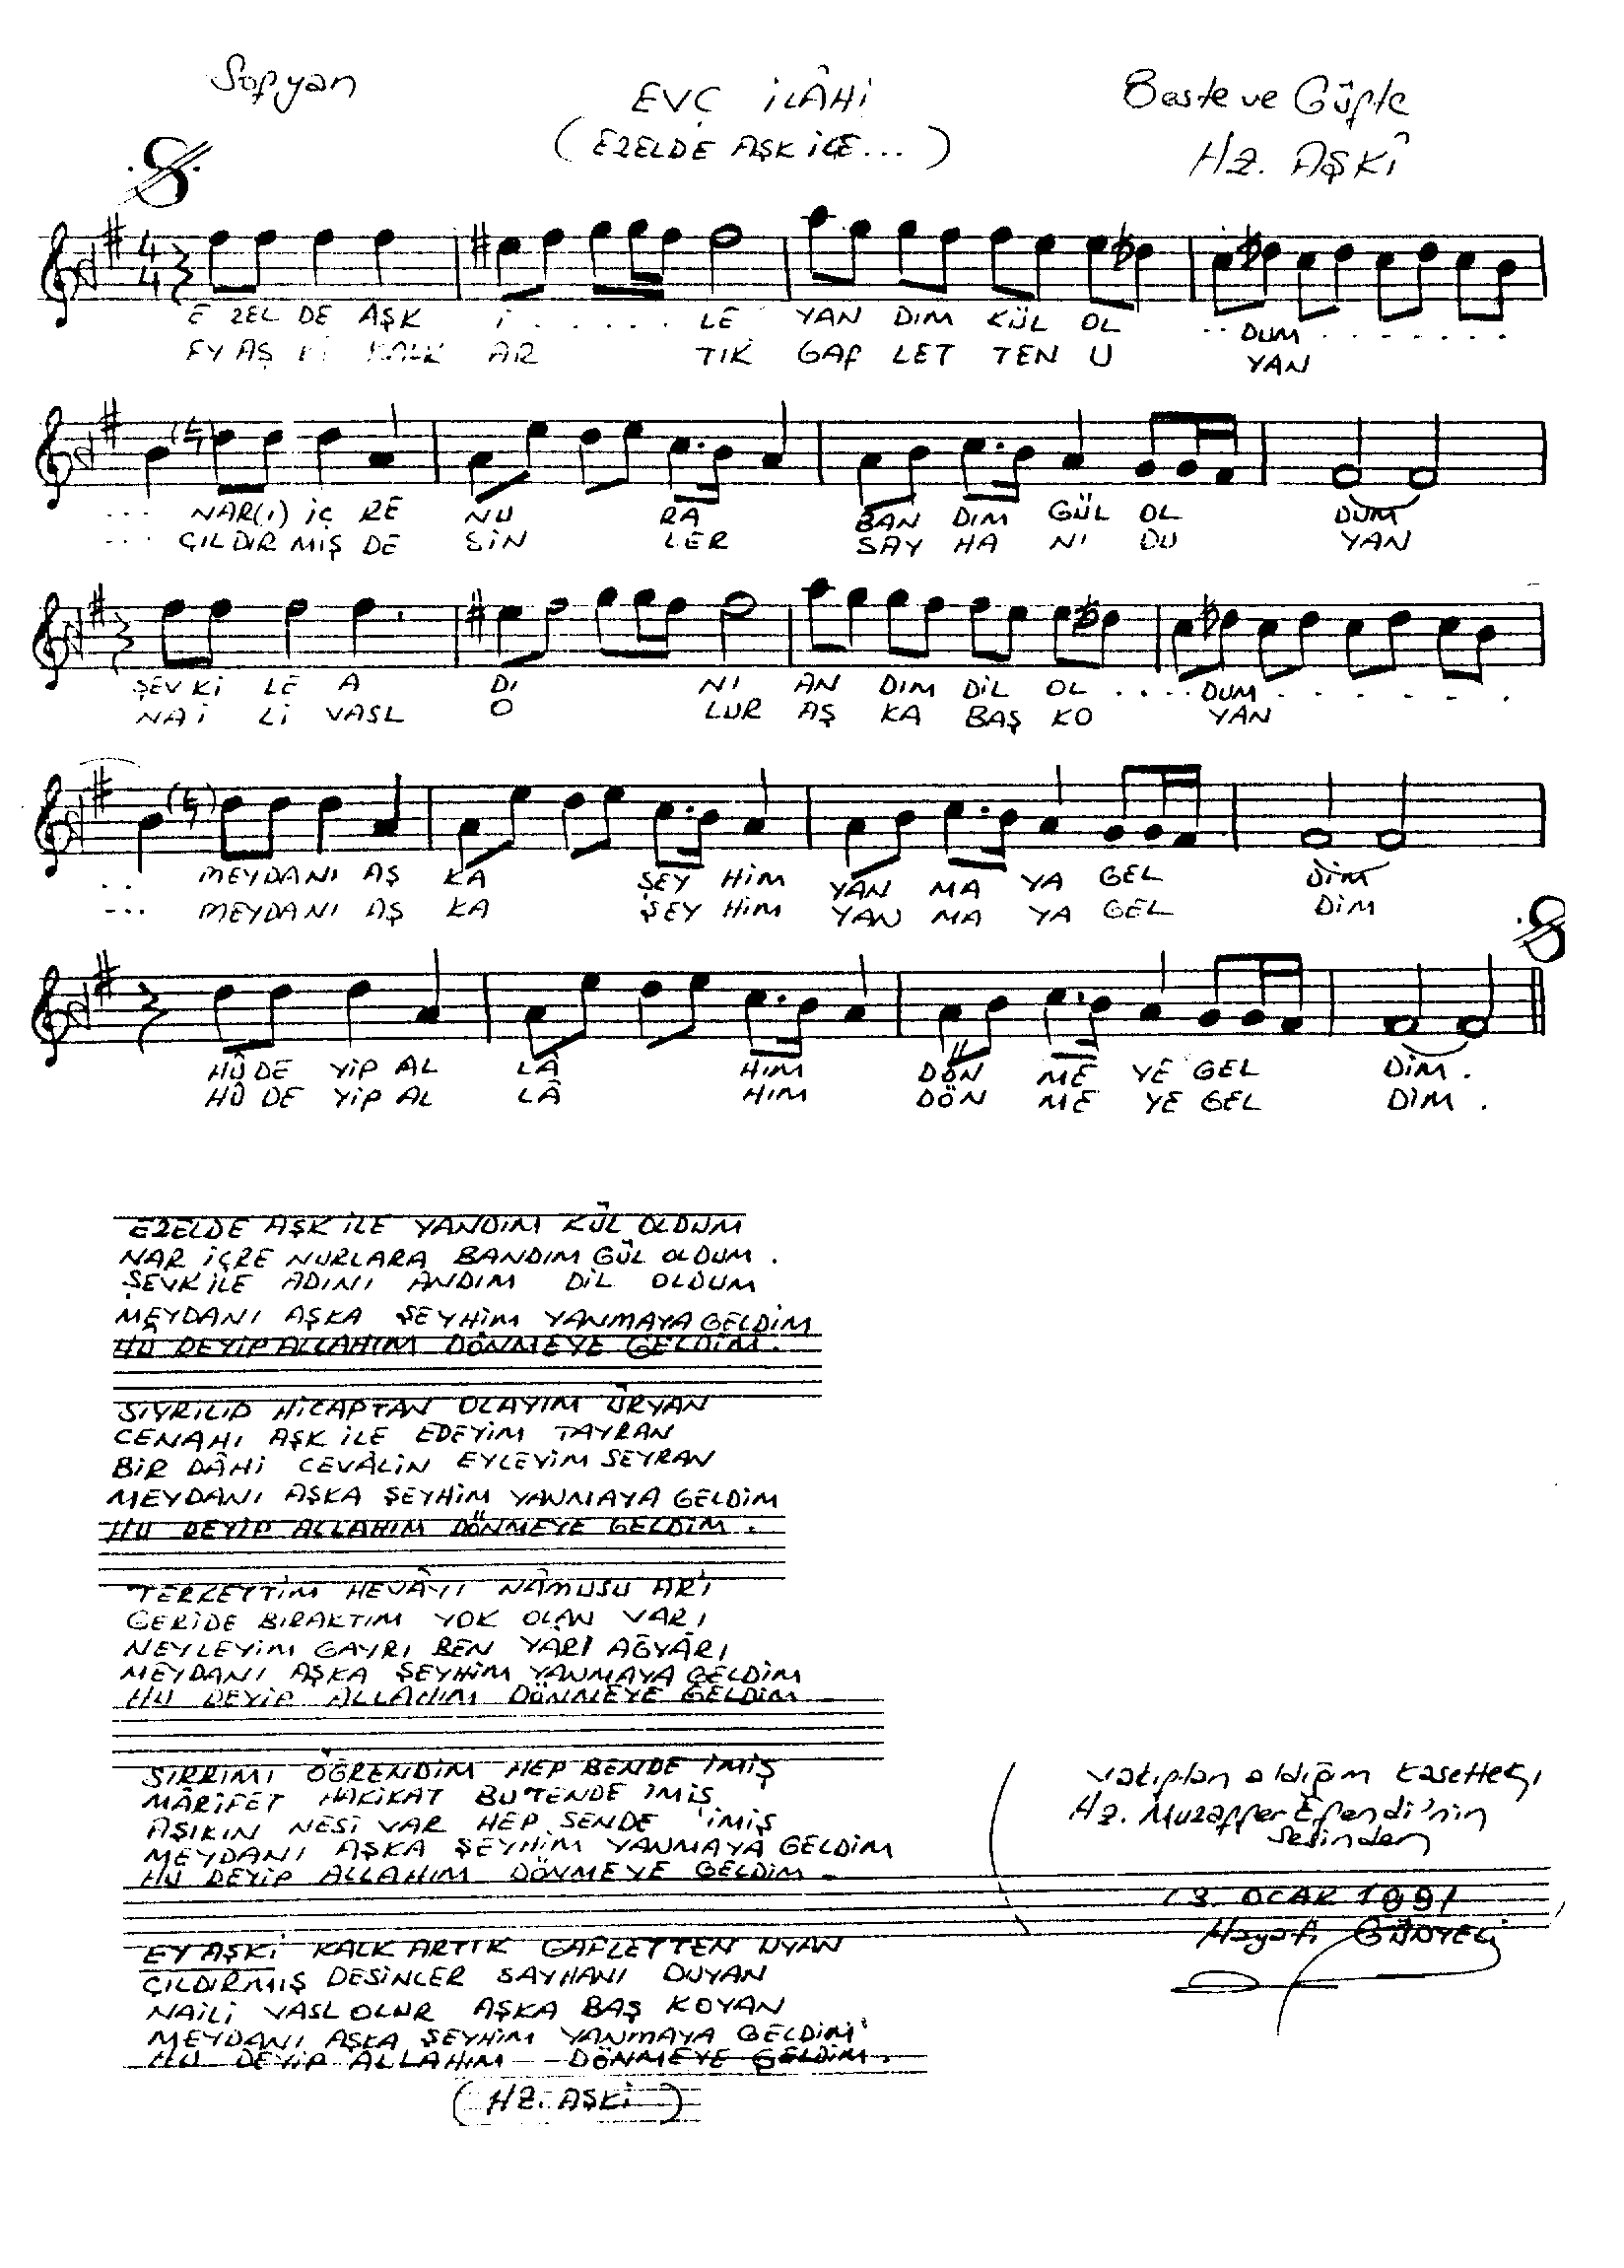 Sofyan
EVÇ İLÂHİ
Beste ve Güfte
(EZELDE AŞK İLE...)
HZ. AŞKÎ
4
4
E ZEL DE AŞK İ . . . . . LE YAN DIM KÜL OL .. DUM . . . . . .
EY AŞ Kİ KALK AR TIK GAF LET TEN U YAN
... NAR(I) İÇ RE NU RA BAN DIM GÜL OL DUM
... ÇILDIR MIŞ DE SİN LER SAY HA NI DU YAN
ŞEV Kİ LE A DI NI AN DIM DİL OL .... DUM . . . . . .
NA İ Lİ VASL O LUR AŞ KA BAŞ KO YAN
.. MEYDANI AŞ KA ŞEY HİM YAN MA YA GEL DİM
... MEYDANI AŞ KA ŞEY HİM YAN MA YA GEL DİM
HÛ DE YİP AL LÂ HIM DÖN ME YE GEL DİM .
HÛ DE YİP AL LÂ HIM DÖN ME YE GEL DİM .
EZELDE AŞK İLE YANDIM KÜL OLDUM
NAR İÇRE NURLARA BANDIM GÜL OLDUM .
ŞEVK İLE ADINI ANDIM DİL OLDUM
MEYDANI AŞKA ŞEYHİM YANMAYA GELDİM
HÛ DEYİP ALLAHIM DÖNMEYE GELDİM .
SIYRILIP HİCAPTAN OLAYIM ÜRYAN
CENAHI AŞK İLE EDEYİM TAYRAN
BİR DÂHİ CEVÂLİN EYLEYİM SEYRAN
MEYDANI AŞKA ŞEYHİM YANMAYA GELDİM
HU DEYİP ALLAHIM DÖNMEYE GELDİM .
TERKETTİM HEVÂYI NÂMUSU ARI
GERİDE BIRAKTIM YOK OLAN VARI
NEYLEYİM GAYRI BEN YARI AĞYÂRI
MEYDANI AŞKA ŞEYHİM YANMAYA GELDİM
HU DEYİP ALLAHIM DÖNMEYE GELDİM
SIRRIMI ÖĞRENDİM HEP BENDE İMİŞ
MÂRİFET HAKİKAT BU TENDE İMİŞ
AŞIKIN NESİ VAR HEP SENDE İMİŞ
MEYDANI AŞKA ŞEYHİM YANMAYA GELDİM
HU DEYİP ALLAHIM DÖNMEYE GELDİM .
Vakıftan aldığım kasetteki
Hz. Muzaffer Efendi'nin
sesinden
OCAK 1991
Hayati
EY AŞKİ KALK ARTIK GAFLETTEN UYAN
ÇILDIRMIŞ DESİNLER SAYHANI DUYAN
NAİLİ VASL OLUR AŞKA BAŞ KOYAN
MEYDANI AŞKA ŞEYHİM YANMAYA GELDİM
HU DEYİP ALLAHIM DÖNMEYE GELDİM .
(HZ. AŞKİ)